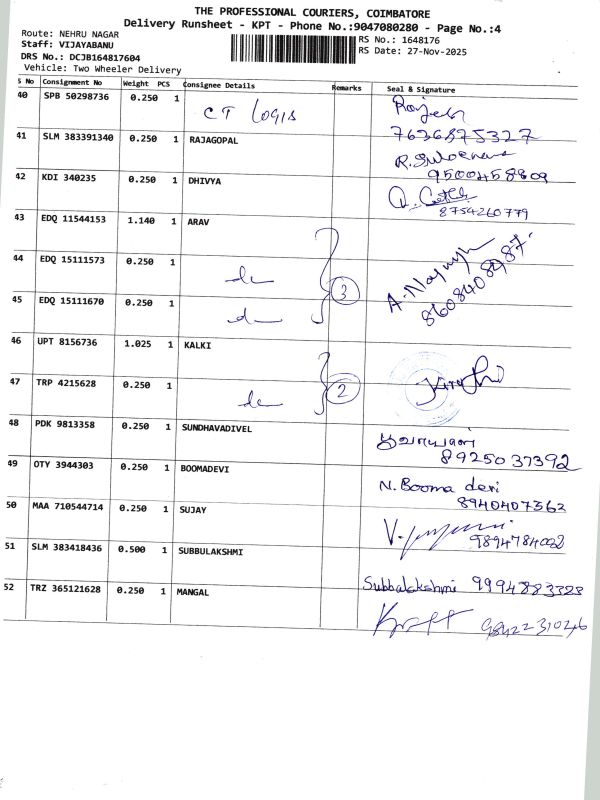 THE PROFESSIONAL COURIERS, COIMBATORE
Delivery Runsheet - KPT - Phone No.:9047080280 - Page No.:4
Route: NEHRU NAGAR
Staff: VIJAYABANU
DRS No.: DCJB164817604
Vehicle: Two Wheeler Delivery
RS No.: 1648176
RS Date: 27-Nov-2025
S No Consignment No Weight PCS Consignee Details Remarks Seal & Signature
40 SPB 50298736 0.250 1 CT Logis Rajesh
7636875327
41 SLM 383391340 0.250 1 RAJAGOPAL
9500458809
42 KDI 340235 0.250 1 DHIVYA
8754260779
43 EDQ 11544153 1.140 1 ARAV
44 EDQ 15111573 0.250 1 3
8608408987
45 EDQ 15111670 0.250 1
46 UPT 8156736 1.025 1 KALKI
47 TRP 4215628 0.250 1 2
48 PDK 9813358 0.250 1 SUNDHAVADIVEL
8925037392
49 OTY 3944303 0.250 1 BOOMADEVI N. Booma devi
8940407362
50 MAA 710544714 0.250 1 SUJAY
9894784002
51 SLM 383418436 0.500 1 SUBBULAKSHMI Subbalakshmi 9994883323
52 TRZ 365121628 0.250 1 MANGAL 9842231046